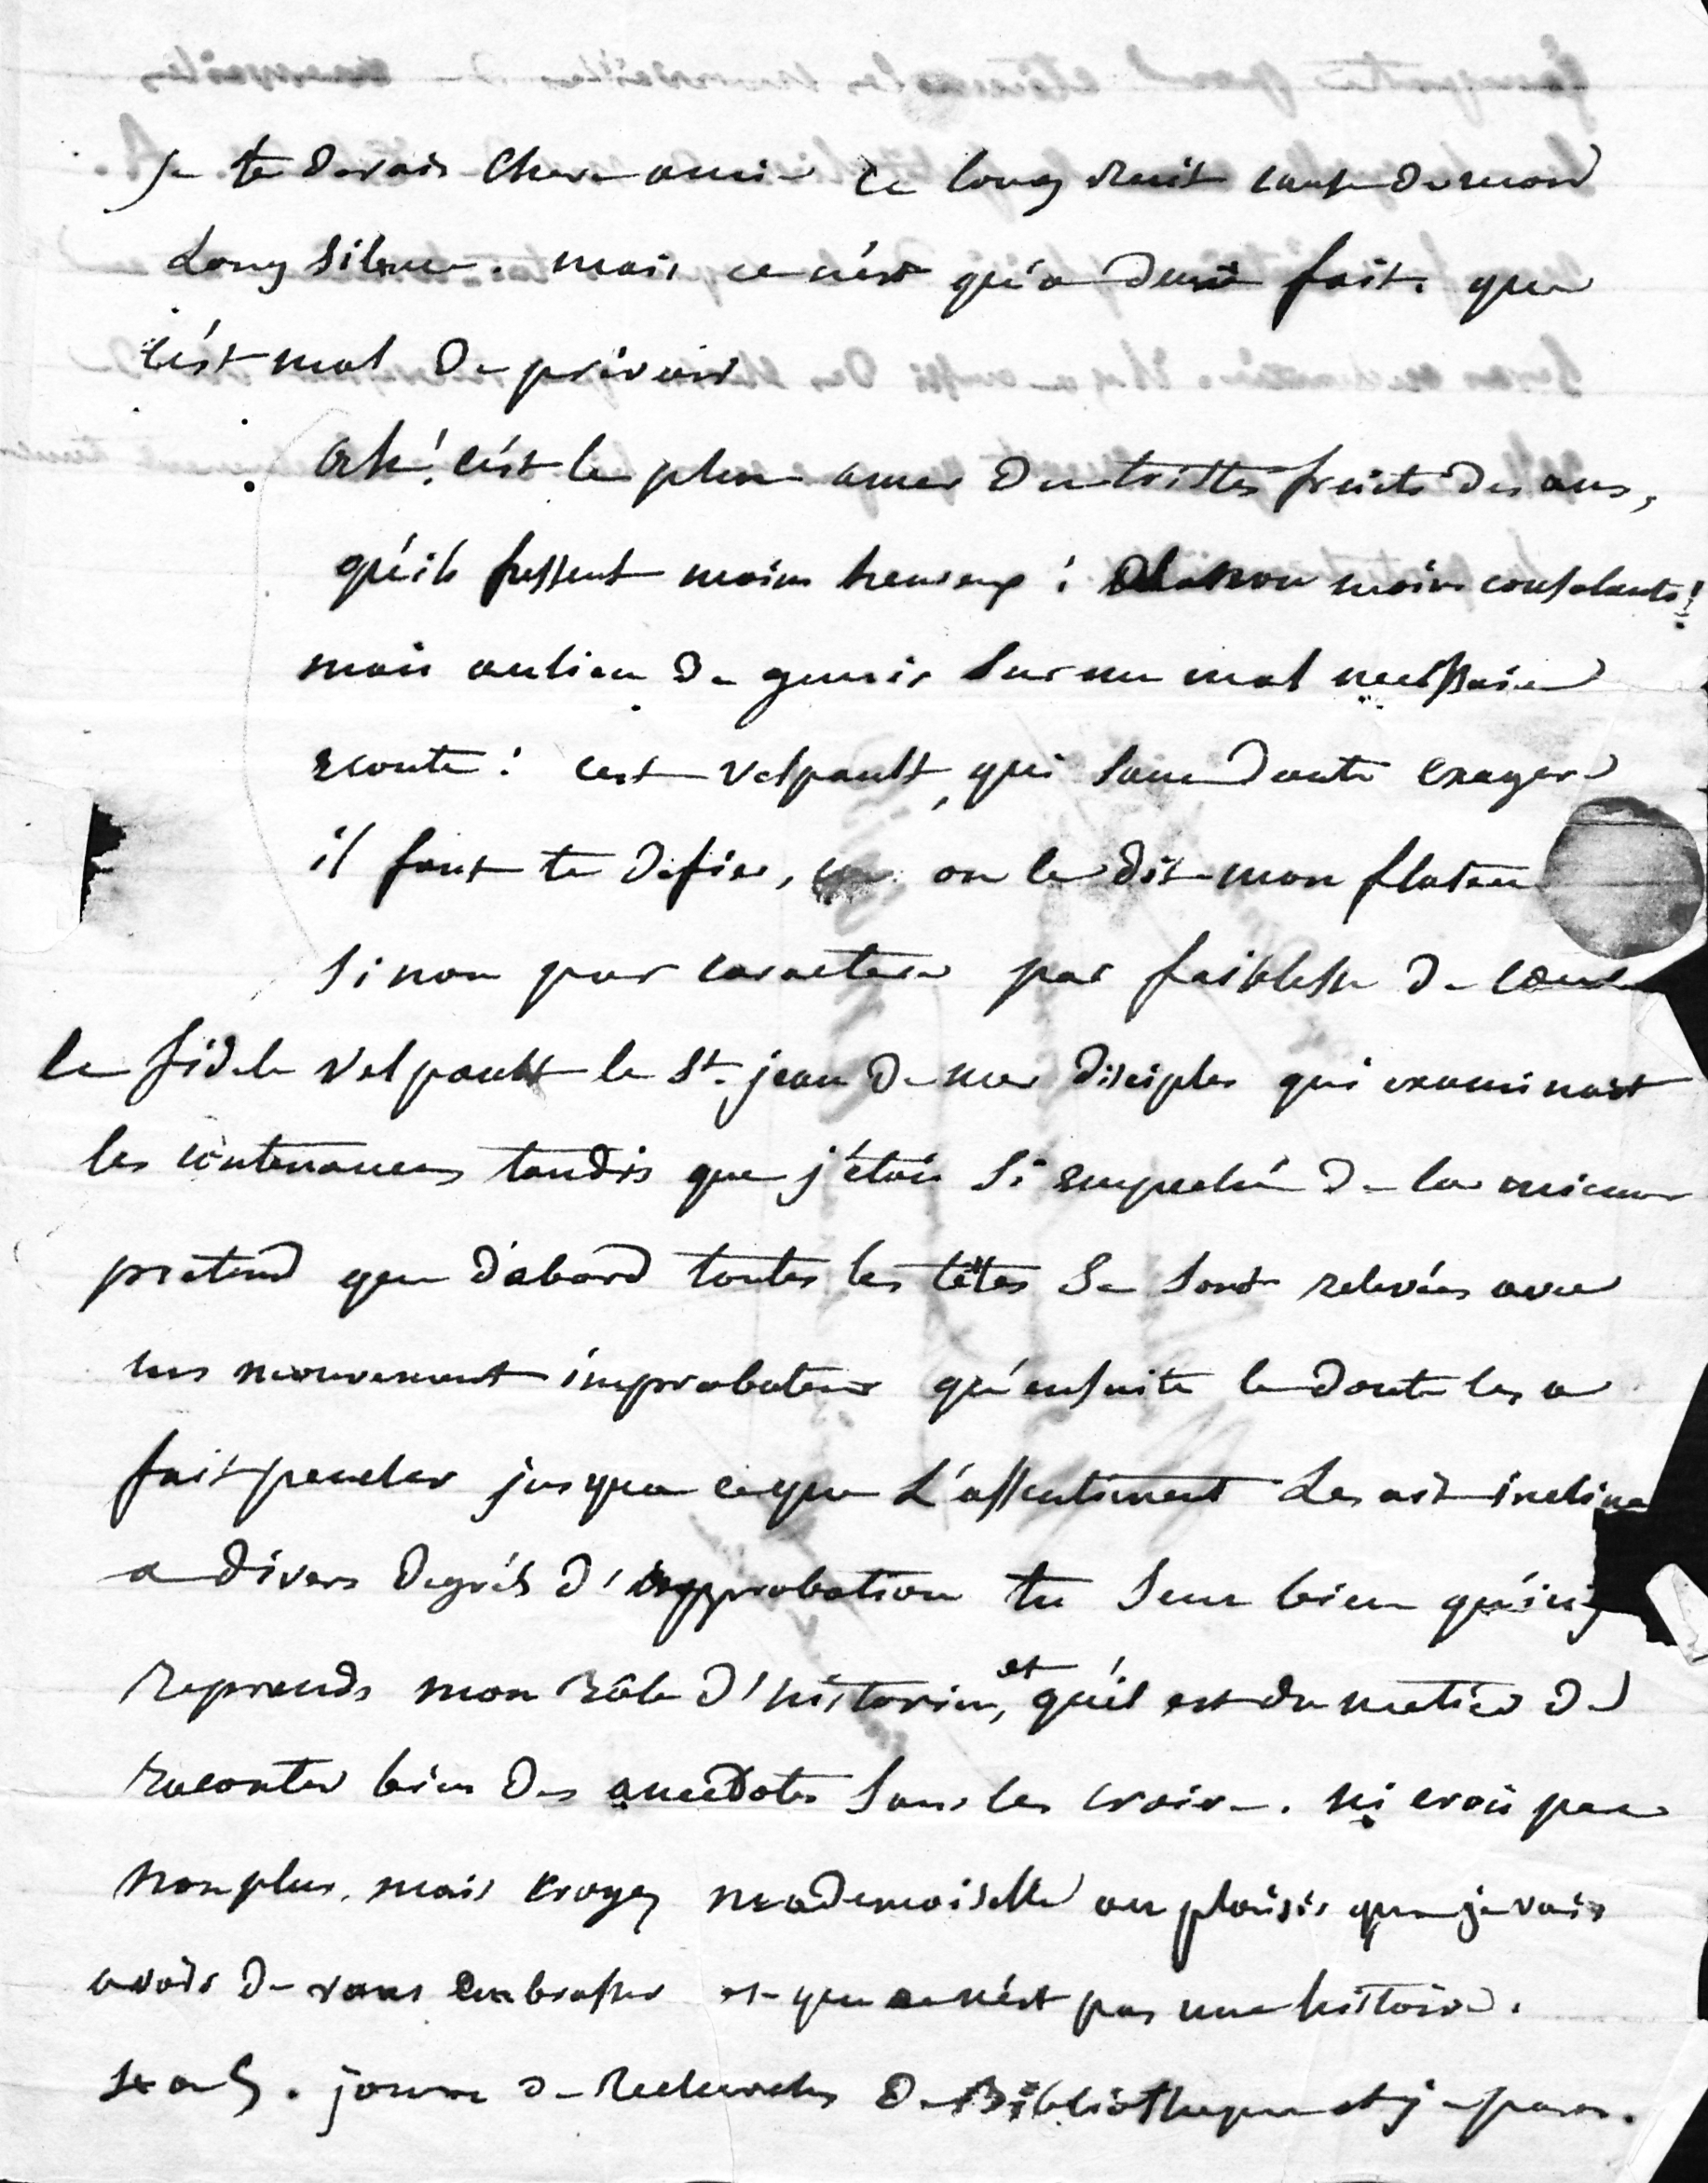 Je te devais chere amie ce long recit cause de mon
Long silence. mais ce n'est qu'a demi fait. que
c'est mal de prevoir
ah! c'est le plus amer des tristes fruits des ans,
qu'ils fussent moins heureux! moins consolants!
mais aulieu de gemir sur un mal necessaire
ecoute! cest velpault, qui sans doute exagere
il faut te defier, on le dit mon flateur
Sinon par caractere par faiblesse de coeur
le fidele velpault le St. jean de mes disciples qui examinait
les contenances tandis que j'étais si empeché de la mienne
pretend que d'abord toutes les têtes se sont relevées avec
un mouvement improbateur qu'ensuite le doute les a
fait pencher jusqua ceque L'assentiment Les ait incline
a divers degrés d'approbation tu sens bien qu'ici j
reprends mon rôle d'historien, et qu'il est du metier de
raconter bien des anecdotes sans les croire. ni crois pas
non plus. mais croyez mademoiselle au plaisir que je vais
avoir de vous embrasser et que ce n'est pas une histoire.
jours de recherches de Bibliotheque et je pars.